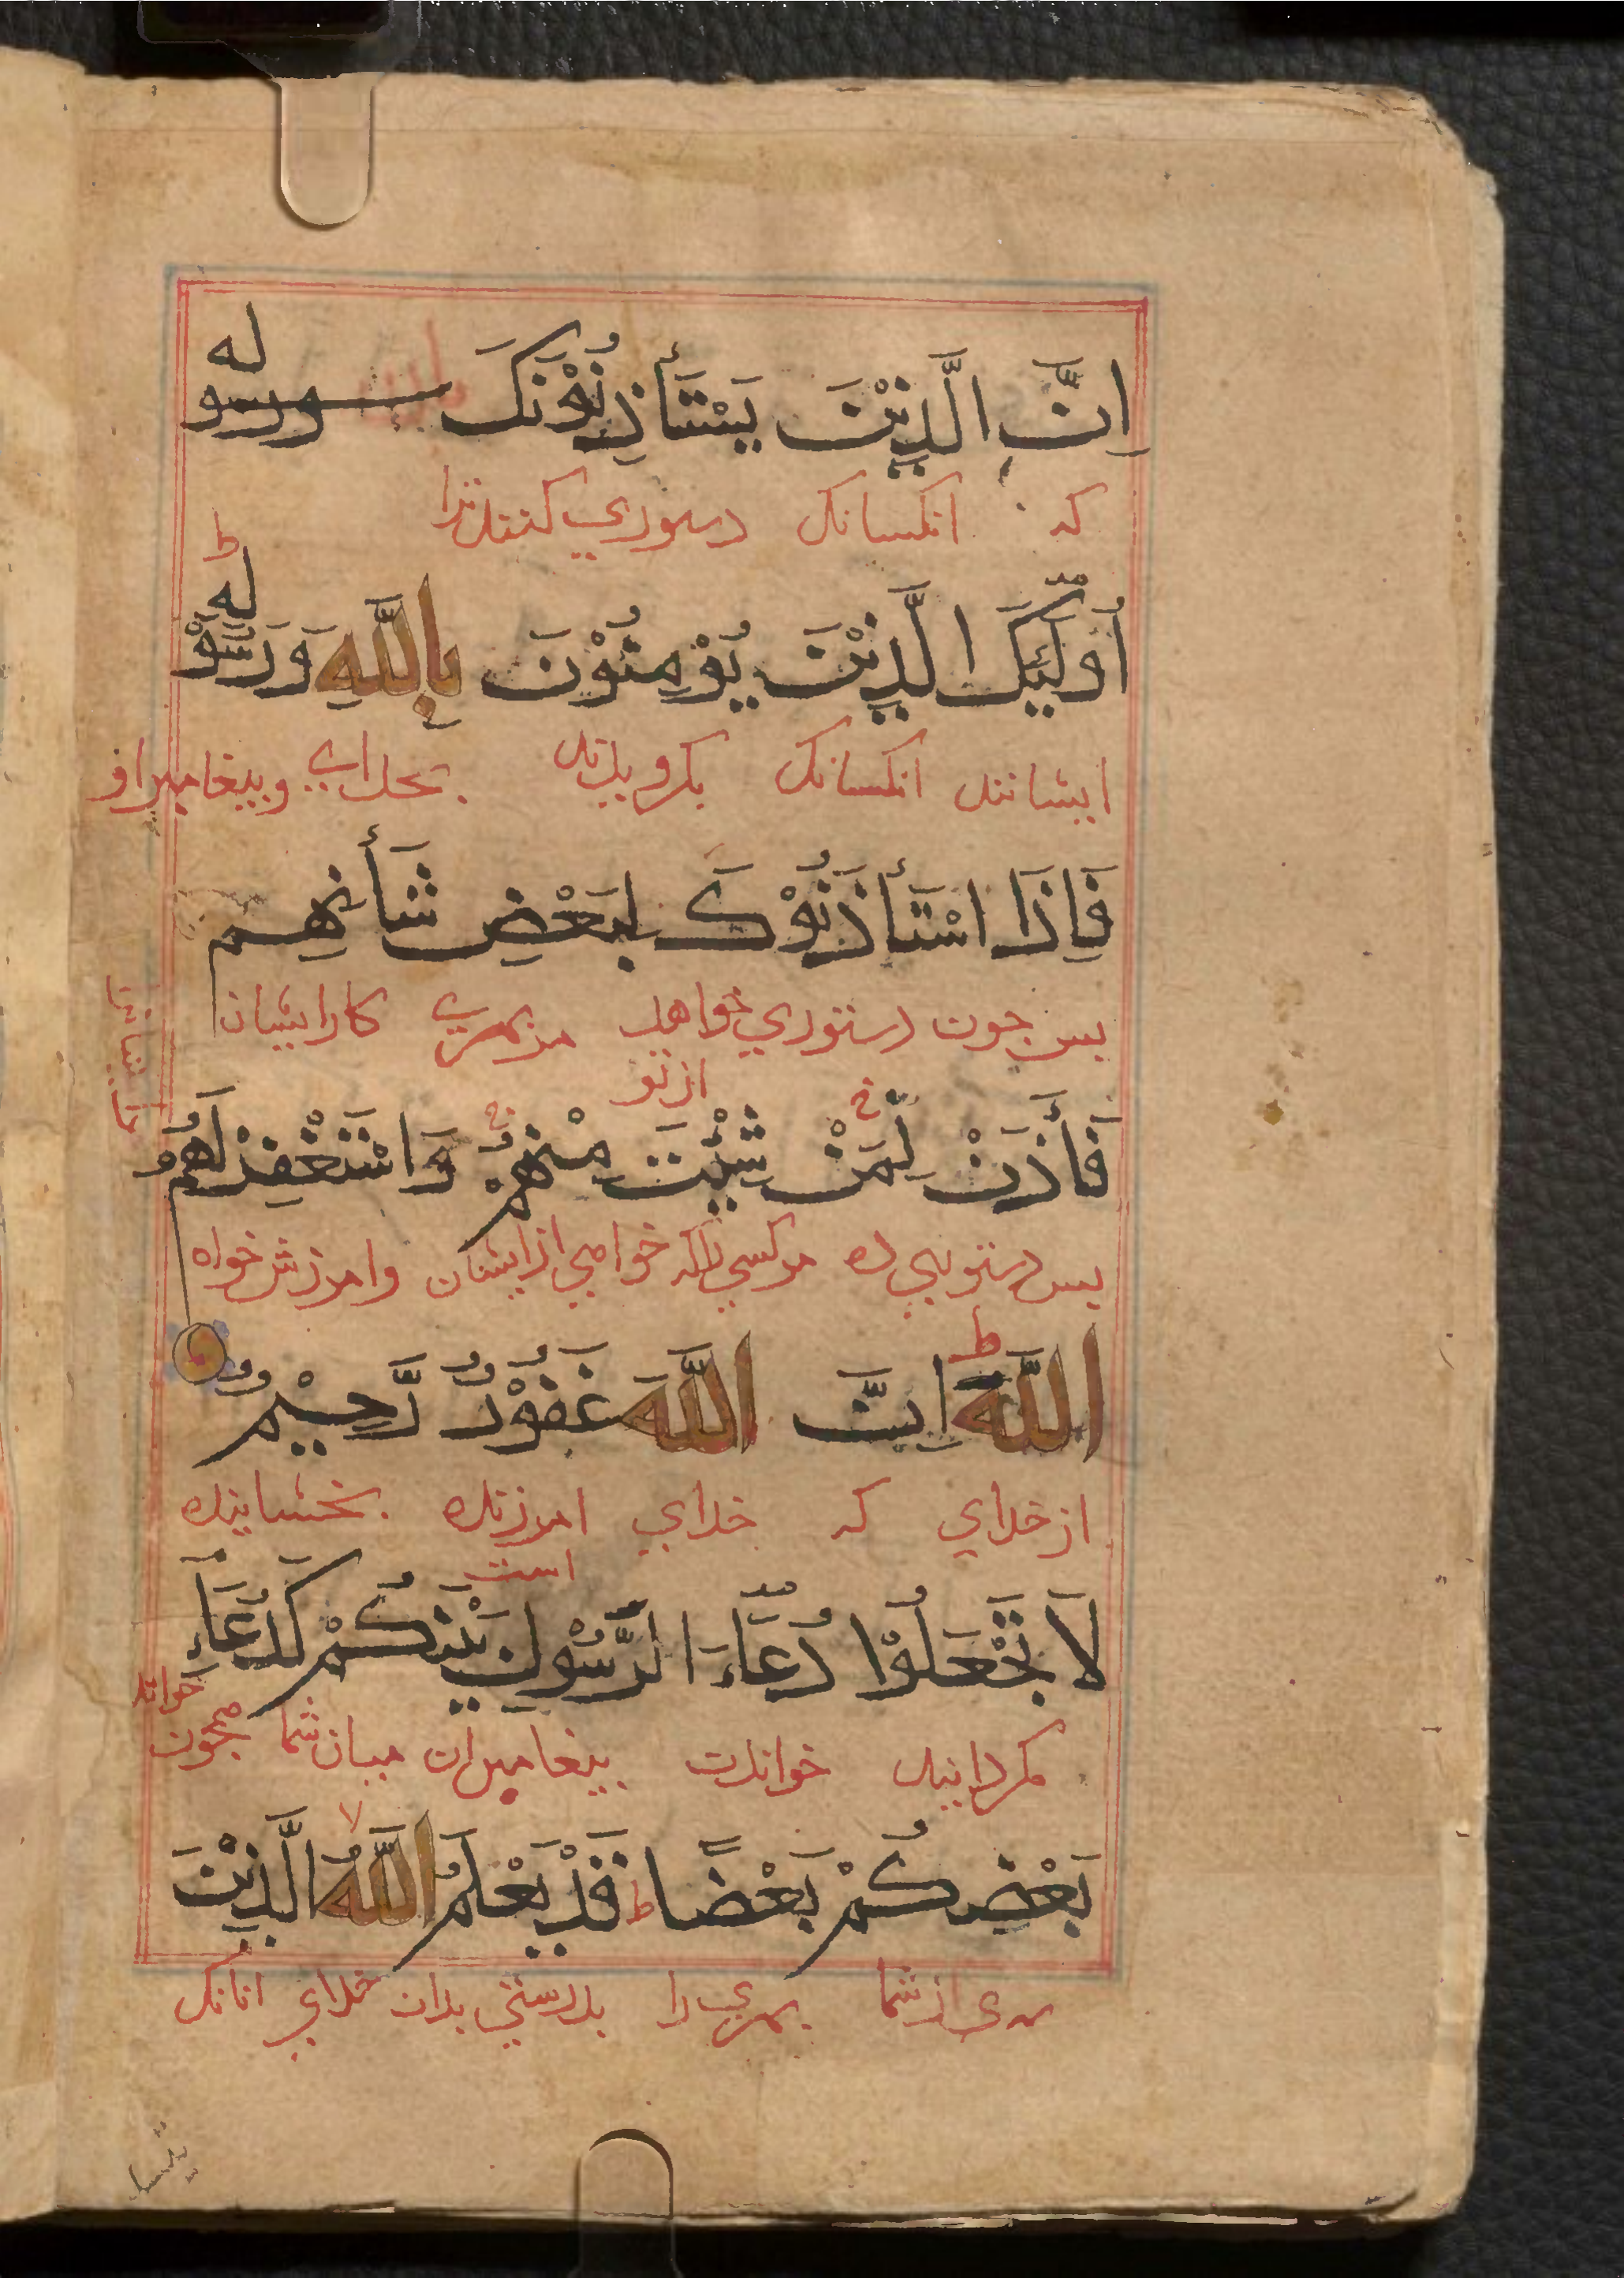 اِنَّ الَّذِيْنَ يَسْتَأْذِنُوْنَكَ ورسوله
که انکسانک دستوري کنندترا
ط
اُولٰٓئِكَ الَّذِيْنَ يُؤْمِنُوْنَ بِاللّٰهِ وَرَسُوْلِهٖ
ایشانند انکسانک بکرویدند بخدای وبیغامبر او
فَاِذَا اسْتَأْذَنُوْكَ لِبَعْضِ شَأْنِهِمْ
بس جون دستوري خواهد مر بهري کار ایشان
از تو
فَأْذَنْ لِّمَنْ شِئْتَ مِنْهُمْ وَاسْتَغْفِرْ لَهُمُ
بس دستوري ده مر کسي را که خواهي از ایشان وامرزش خواه
ط
اللّٰهَ اِنَّ اللّٰهَ غَفُوْرٌ رَّحِيْمٌ
از خداي که خداي امرزنده بخشاینده
است
لَا تَجْعَلُوْا دُعَآءَ الرَّسُوْلِ بَيْنَكُمْ كَدُعَآءِ
مکردانید خواندن بیغامبران میان شما همجون خواند
لا
بَعْضِكُمْ بَعْضًا ط قَدْ يَعْلَمُ اللّٰهُ الَّذِيْنَ
بهري از شما بهري را بدرستي بدان خداي انانک